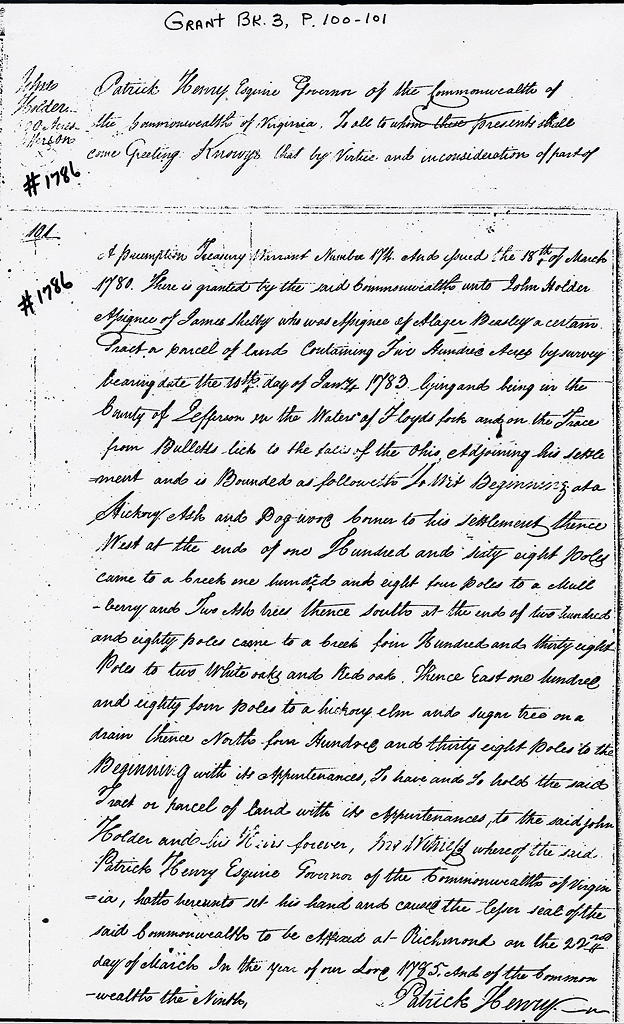 GRANT BK. 3, P. 100-101
John
Holder
Acres
#1786
Patrick Henry Esquire Governor of the Commonwealth of
the Commonwealth of Virginia. To all to whom these presents shall
come Greeting. Knowye that by Virtue and inconsideration of part of
101
#1786
A preemption Treasury Warrant Number 174. And issued the 18th of March
1780. There is granted by the said Commonwealth unto John Holder
Assignee of James Shelby who was Assignee of Alager Beasley a certain
Tract or parcel of land Containing Five Hundred Acres by survey
bearing date the 10th day of Jany 1783 lying and being in the
County of Jefferson on the Waters of Floyds fork and on the Trace
from Bulletts lick to the falls of the Ohio Adjoining his settle
=ment and is Bounded as followeth To Wit Beginning at a
Hickory Ash and Dogwood Corner to his settlement thence
West at the end of one Hundred and sixty eight Poles
came to a Creek one hundred and eight four poles to a Mull
-berry and Two Ash trees thence south at the end of two hundred
and eighty poles came to a Creek four Hundred and thirty eight
Poles to two White oaks and Red oak. Thence East one hundred
and eighty four poles to a hickory elm and sugar tree on a
drain thence North four Hundred and thirty eight Poles to the
Beginning with its Appurtenances, To have and To hold the said
Tract or parcel of land with its Appurtenances, to the said John
Holder and his Heirs forever, In Witness whereof the said
Patrick Henry Esquire Governor of the Commonwealth of Virgin
=ia, hath hereunto set his hand and caused the lesser seal of the
said Commonwealth to be Affixed at Richmond on the 22nd
day of March In the year of our Lord 1785. And of the Common
-wealth the Ninth,
Patrick Henry